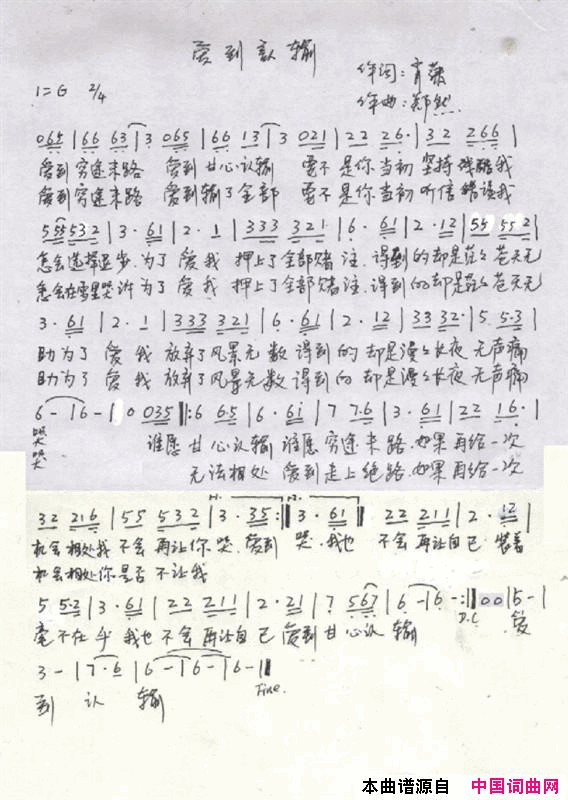 爱到认输
作词：肖薇
1=G 2/4
作曲：郑然
065 | 66 63 | 3 065 | 66 13 | 3 021 | 22 26· | 32 266 |
爱到穷途末路 爱到甘心认输 要不是你当初 坚持残酷我
爱到穷途末路 爱到输了全部 要不是你当初 听信错误我
55532 | 3· 61 | 2· 1 | 333 321 | 6· 61 | 2· 12 | 55 552 |
怎会选择退步.为了爱我 押上了全部赌注.得到的却是茫茫苍天无
怎会在雪里哭诉为了爱我 押上了全部赌注.得到的却是茫茫苍天无
3· 61 | 2· 1 | 333 321 | 6· 61 | 2· 12 | 33 32· | 5 5·3 |
助为了爱我 放弃了风景无数得到的却是漫漫长夜无声痛
助为了爱我 放弃了风景无数得到的却是漫漫长夜无声痛
6 - | 6 - | 0 035 :‖: 6 65 | 6· 61 | 7 7·6 | 3· 61 | 22 16· |
哭 谁愿甘心认输谁愿穷途末路.如果再给一次
哭 无法相处 爱到走上绝路.如果再给一次
32 216 | 55 532 | 3· 35 :‖ 3· 61 22 211 | 2· 12 |
机会相处我不会再让你哭.爱到 哭.我也 不会再让自己 装着
机会相处你是否不让我
5 52 | 3· 61 | 22 211 | 2· 21 | 7 567 | 6 - | 6 - :‖ 00 | 5 - |
毫不在乎 我也不会再让自己爱到甘心认输 D.C 爱
3 - | 7· 6 | 6 - | 6 - | 6 - ‖
到 认 输 Fine.
本曲谱源自 中国词曲网